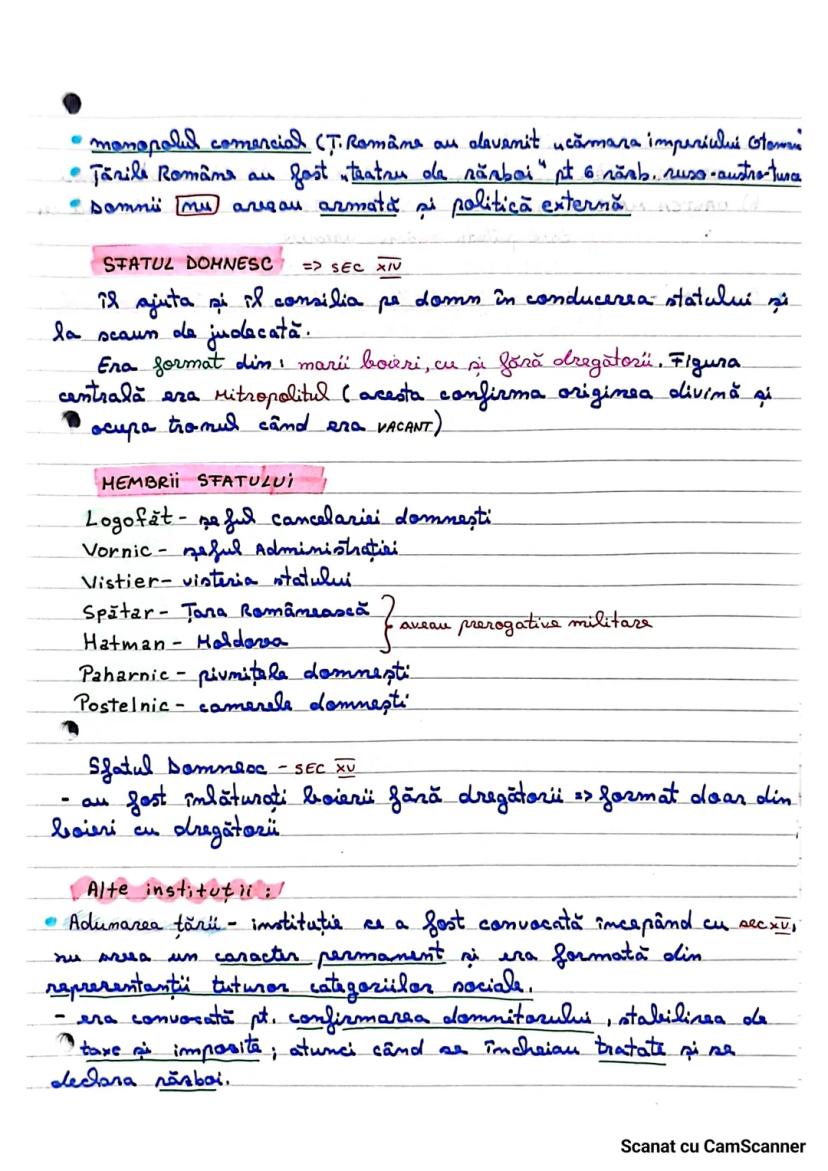 • monopolul comercial (Ț. Române au devenit „cămara imperiului Otoman"
• Țările Române au fost „teatru de război" pt 6 răsb. ruso-austro-turce
• Domnii nu aveau armată și politică externă
SFATUL DOMNESC => SEC XIV
Îl ajuta și îl consilia pe domn în conducerea statului și
la scaun de judecată.
Era format din: marii boieri, cu și fără dregătorii. Figura
centrală era Mitropolitul (acesta confirma originea divină și
ocupa tronul când era VACANT)
MEMBRII SFATULUI
Logofăt - șeful cancelariei domnești
Vornic - șeful Administrației
Vistier - visteria statului
Spătar - Țara Românească
aveau prerogative militare
Hatman - Moldova
Paharnic - pivnițele domnești
Postelnic - camerele domnești
Sfatul Domnesc - SEC XV
- au fost înlăturați boierii fără dregătorii => format doar din
boieri cu dregătorii
Alte instituții:
• Adunarea țării - instituție ce a fost convocată începând cu sec XV,
nu avea un caracter permanent și era formată din
reprezentanții tuturor categoriilor sociale.
- era convocată pt. confirmarea domnitorului, stabilirea de
taxe și impozite; atunci când se încheiau tratate și se
declara război.
Scanat cu CamScanner